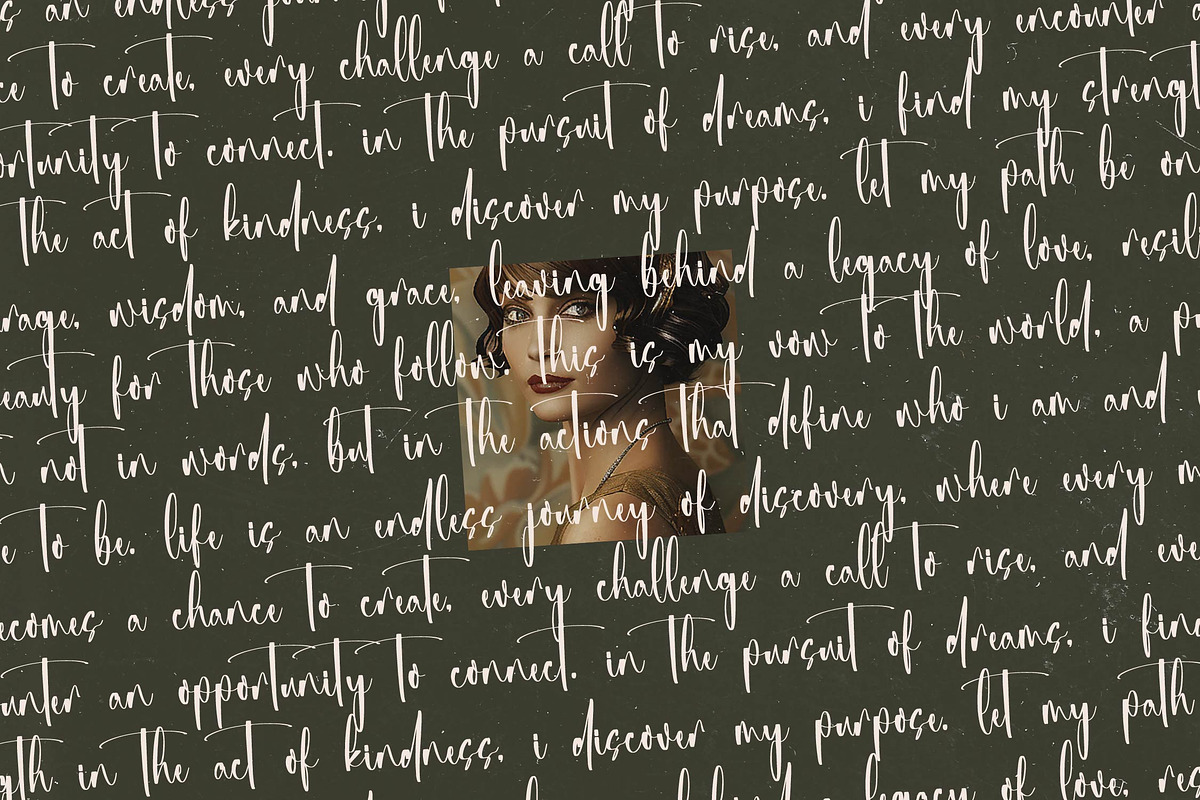 s an endless
ce to create, every challenge a call to rise, and every encounter a
ortunity to connect. in the pursuit of dreams, i find my strengt
the act of kindness, i discover my purpose. let my path be on
rage, wisdom, and grace, leaving behind a legacy of love, resil
eauty for those who follow. this is my vow to the world, a p
n not in words, but in the actions that define who i am and
e to be. life is an endless journey of discovery, where every m
ecomes a chance to create, every challenge a call to rise, and eve
unter an opportunity to connect. in the pursuit of dreams, i find
gth. in the act of kindness, i discover my purpose. let my path
behind a legacy of love, res